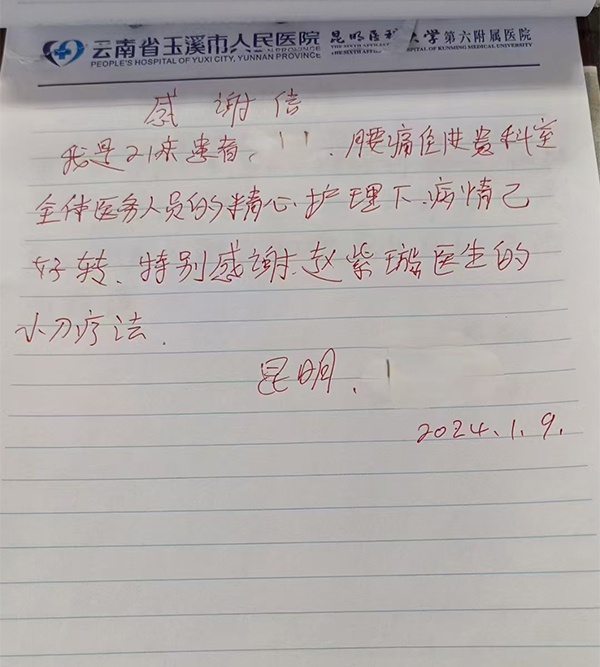 云南省玉溪市人民医院 昆明医科大学第六附属医院
PEOPLE'S HOSPITAL OF YUXI CITY, YUNNAN PROVINCE THE SIXTH AFFILIATED HOSPITAL OF KUNMING MEDICAL UNIVERSITY
感谢信
我是21床患者、 . 腰痛住进贵科室
全体医务人员的精心护理下.病情已
好转、特别感谢赵紫璇医生的
小刀疗法.
昆明、
2024.1.9.